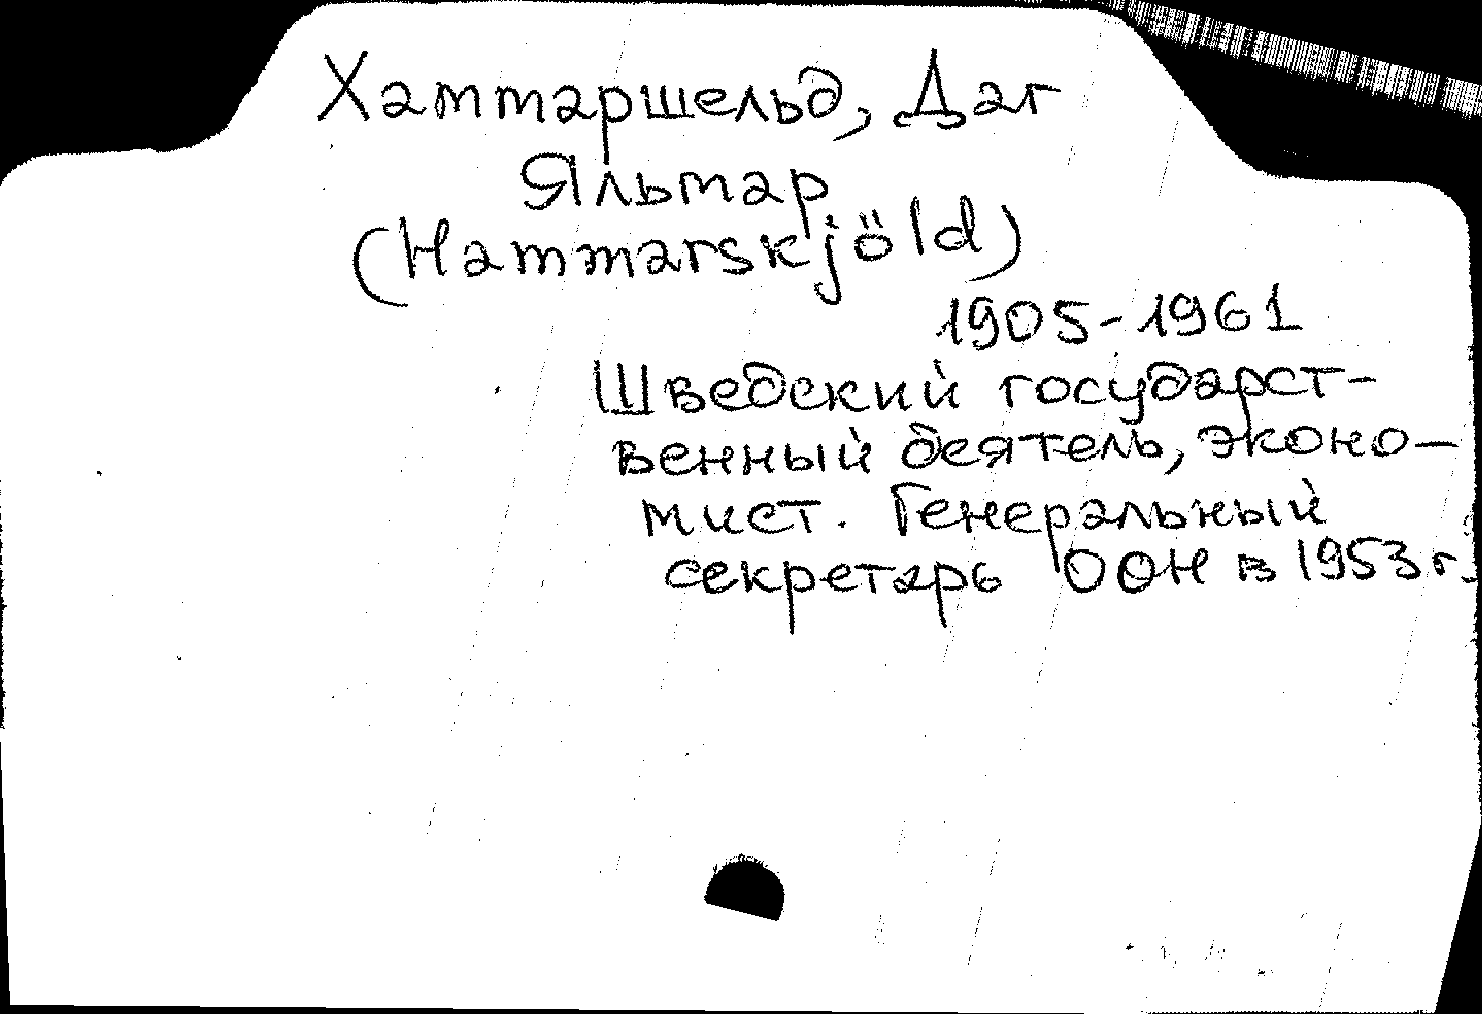 Хаммаршельд, Даг
Яльмар
(Hammarskjöld)
1905-1961
Шведский государст-
венный деятель, эконо-
мист. Генеральный
секретарь ООН в 1953 г.